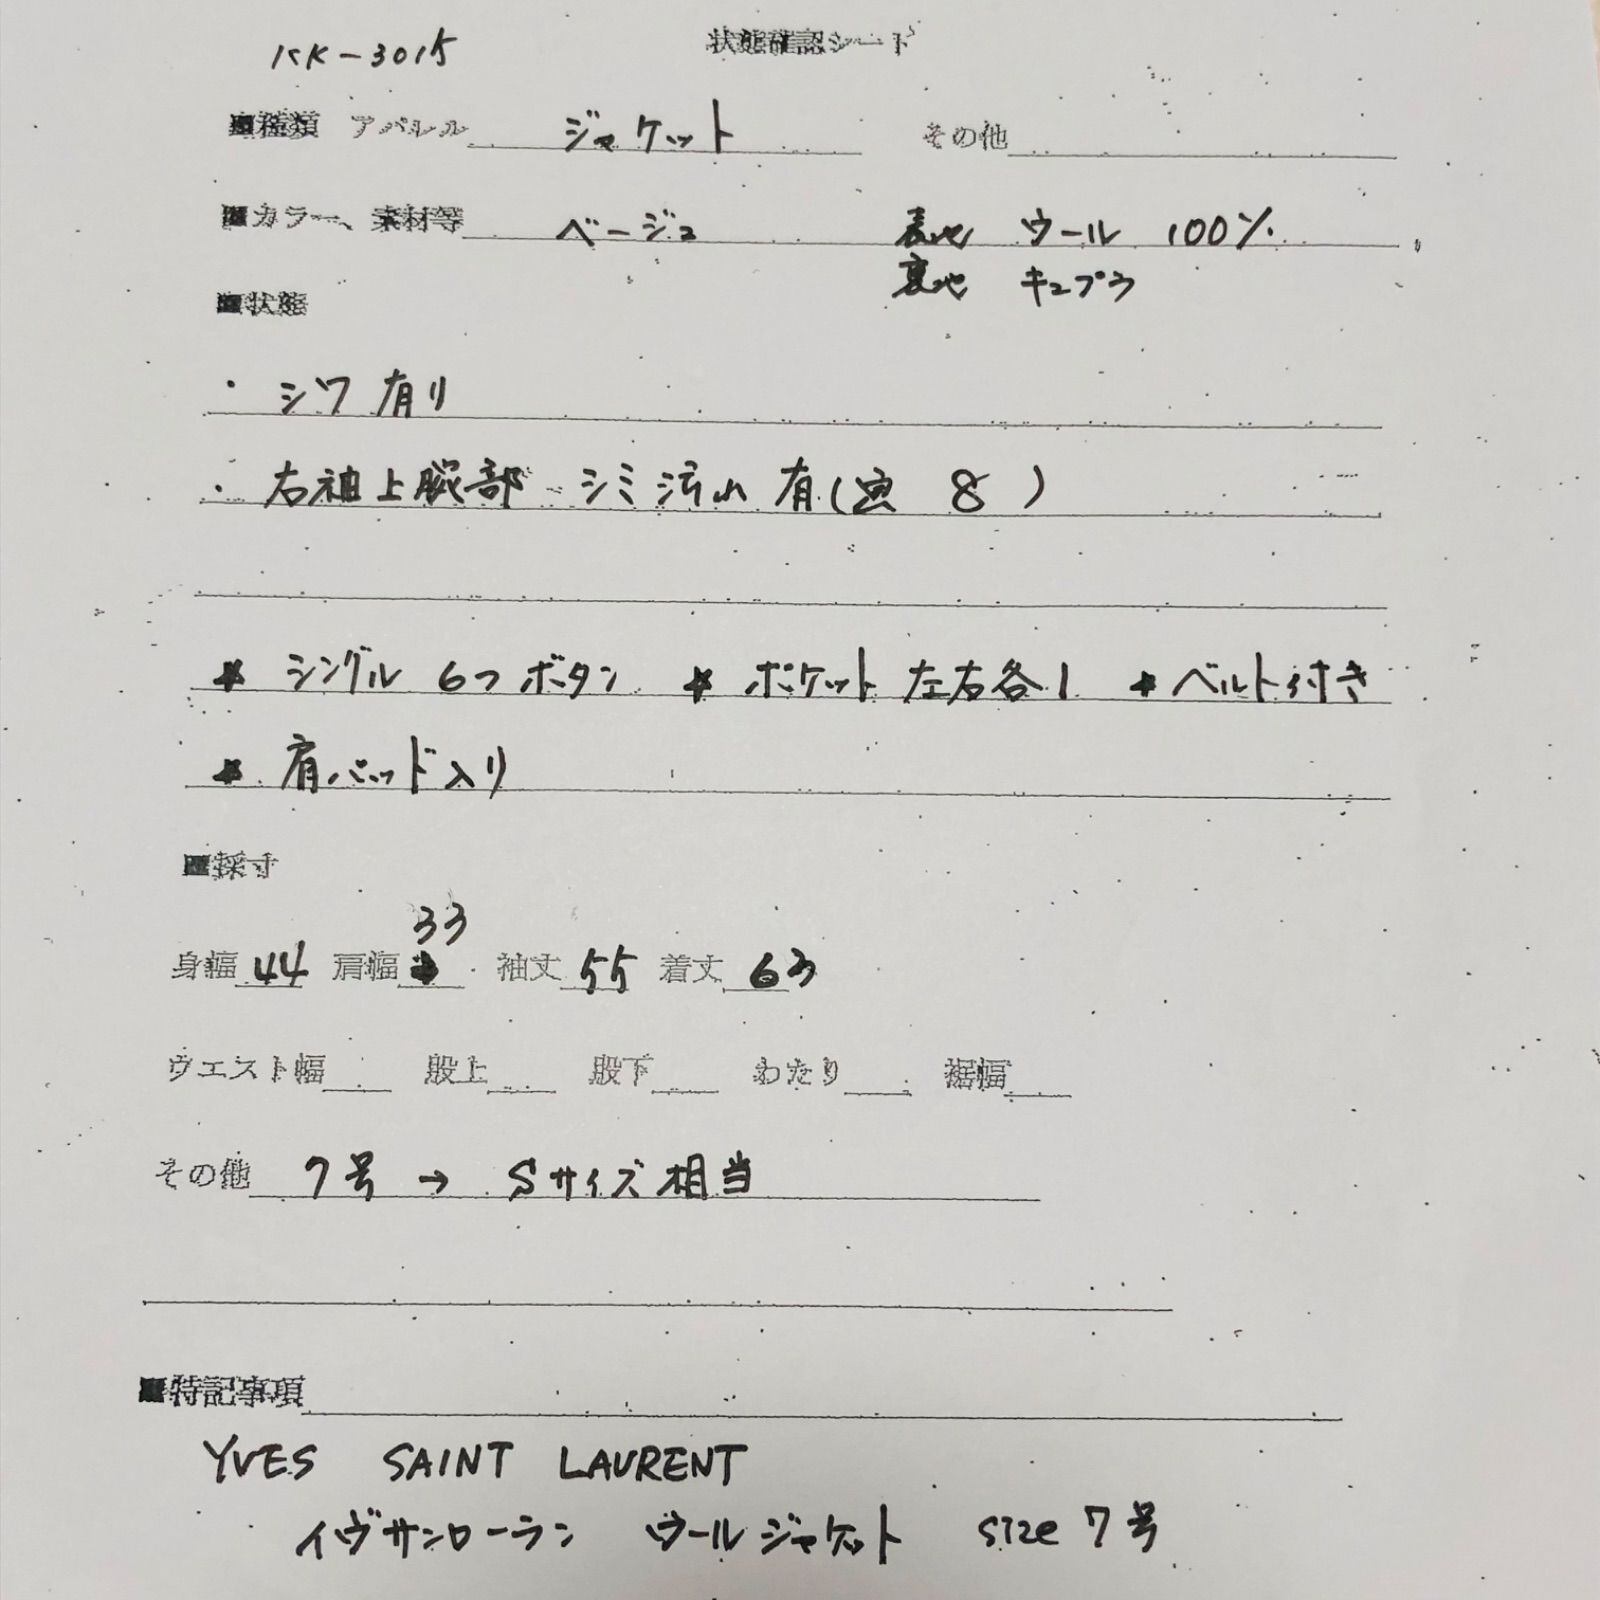 KK-3015 状態確認シート
■種類 アパレル ジャケット その他
■カラー、素材等 ベージュ 表地 ウール 100%
裏地 キュプラ
■状態
・シワ有り
・右袖上腕部 シミ汚れ有(画 8 )
★ シングル 6つボタン ★ ポケット 左右各1 ★ ベルト付き
★ 肩パッド入り
■採寸
33
身幅 44 肩幅 袖丈 55 着丈 63
ウエスト幅 股上 股下 わたり 裾幅
その他 7号 → Sサイズ相当
■特記事項
YVES SAINT LAURENT
イヴサンローラン ウールジャケット size 7号